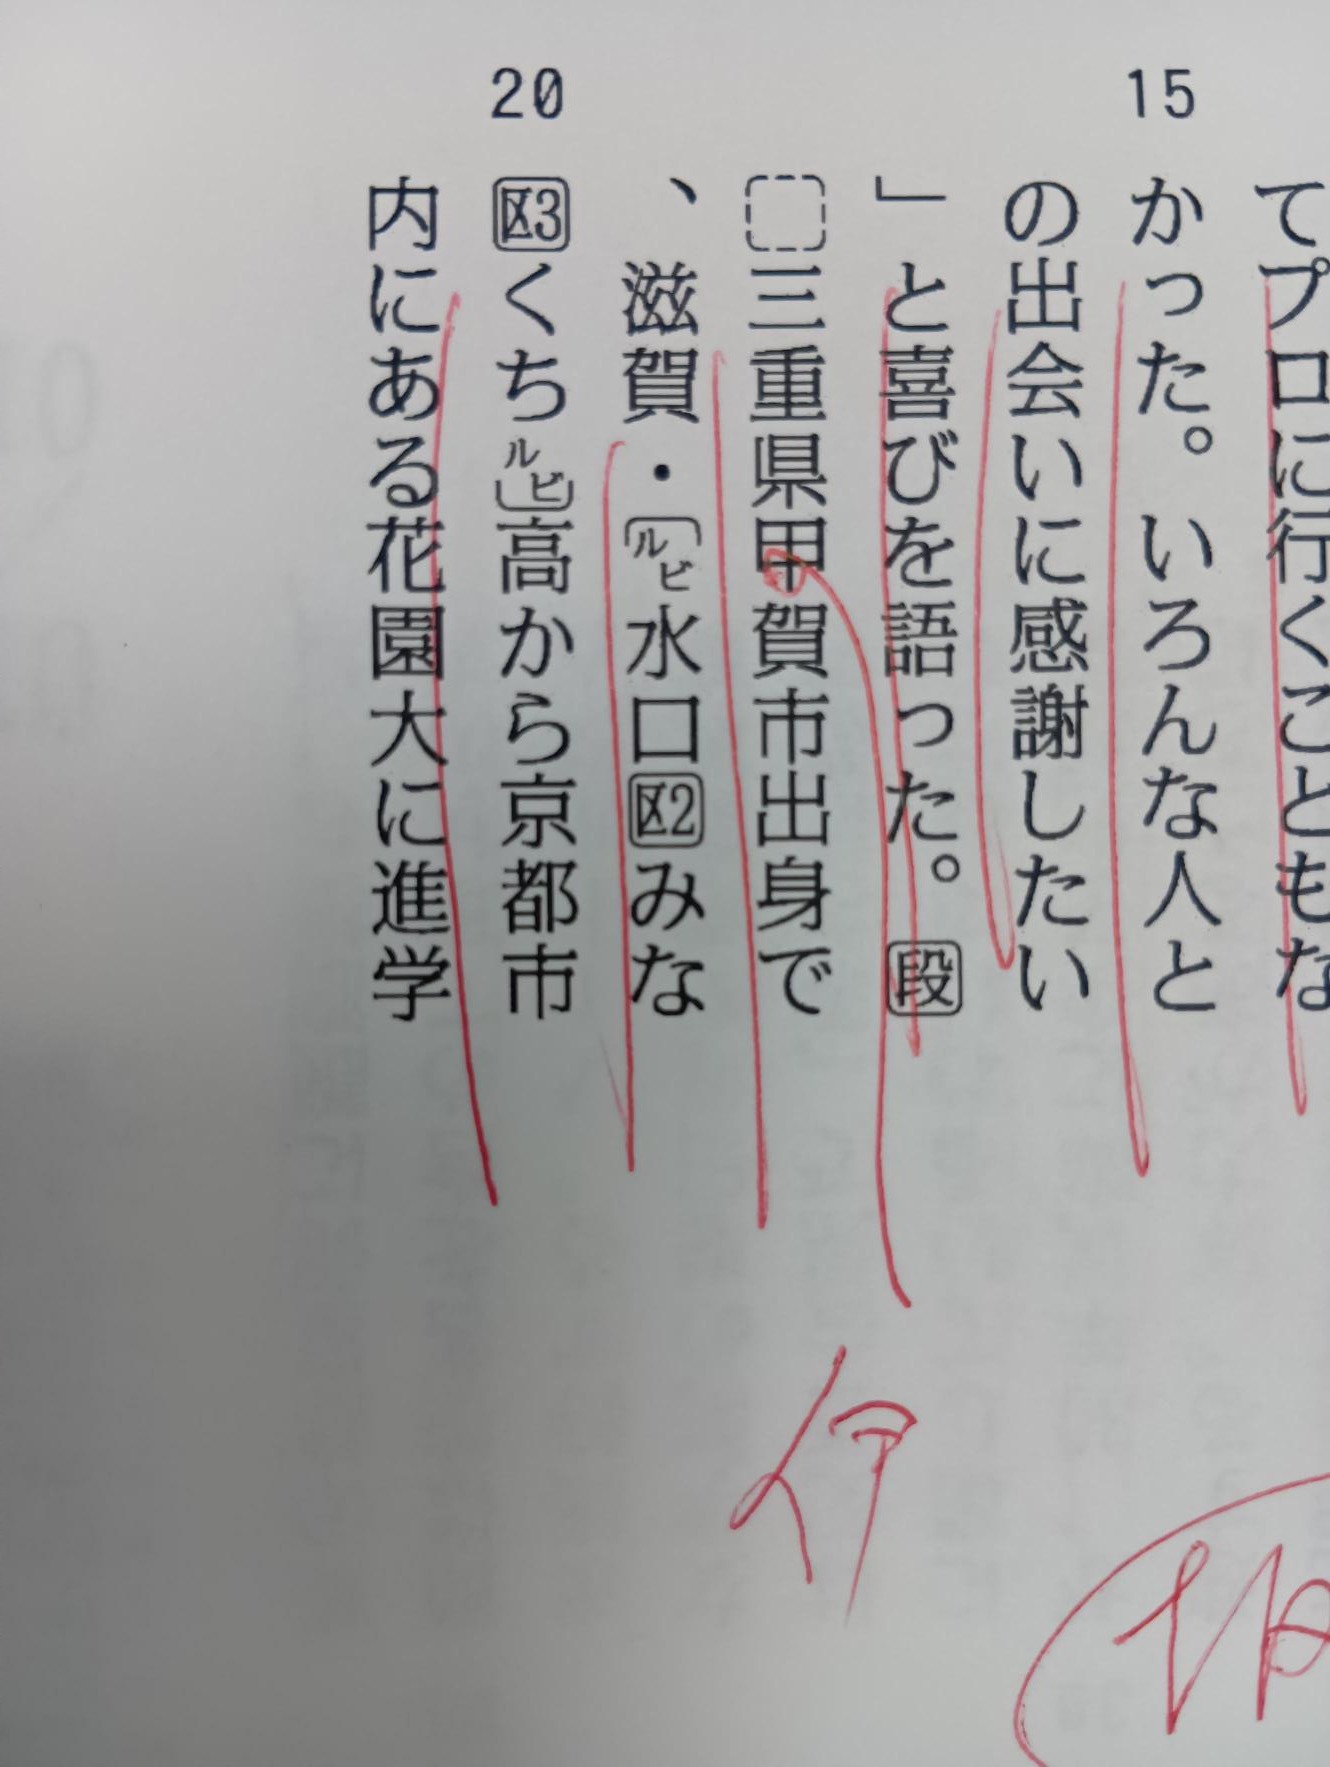 15
20
てプロに行くこともな
かった。いろんな人と
の出会いに感謝したい
」と喜びを語った。段
三重県甲賀市出身で
、滋賀・ルビ水口区2みな
区3くちルビ高から京都市
内にある花園大に進学
伊